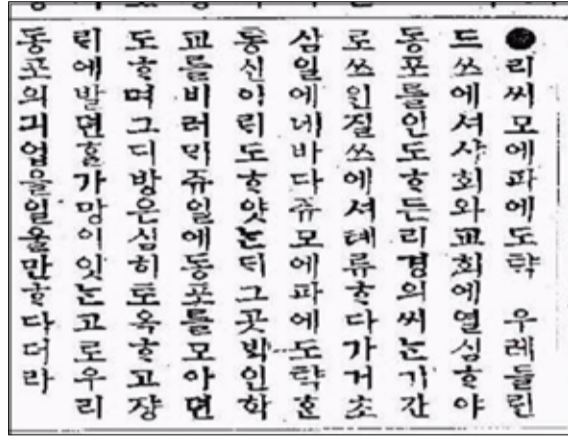 ●리씨모에파에도탹 우레들린
드쓰에셔샤회와교회에열심ᄒᆞ야
동포를인도ᄒᆞ든리경의씨ᄂᆞᆫ기간
로쓰인질쓰에셔톄류ᄒᆞ다가거초
삼일에네바다쥬모에파에도탹ᄒᆞᆫ
통신이ᄅᆡ도ᄒᆞ얏ᄂᆞᆫᄃᆡ그곳ᄇᆡᆨ인학
교를비러ᄆᆡ쥬일에동포를모아뎐
도ᄒᆞ며그디방은심히토옥ᄒᆞ고쟝
ᄅᆡ에발뎐ᄒᆞᆯ가망이잇ᄂᆞᆫ고로우리
동포의긔업을일울만ᄒᆞ다더라